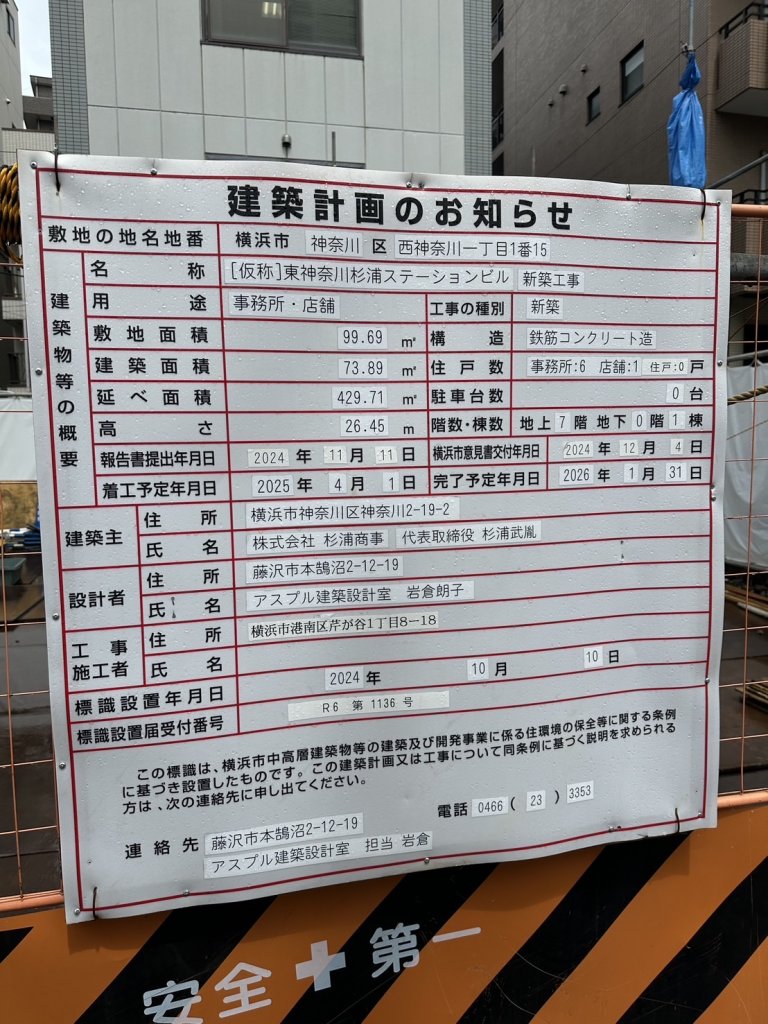 建築計画のお知らせ
敷地の地名地番 横浜市 神奈川 区 西神奈川一丁目1番15
建築物等の概要
名称 [仮称]東神奈川杉浦ステーションビル 新築工事
用途 事務所・店舗 工事の種別 新築
敷地面積 99.69 ㎡ 構造 鉄筋コンクリート造
建築面積 73.89 ㎡ 住戸数 事務所:6 店舗:1 住戸:0 戸
延べ面積 429.71 ㎡ 駐車台数 0 台
高さ 26.45 m 階数・棟数 地上 7 階 地下 0 階 1 棟
報告書提出年月日 2024 年 11 月 11 日 横浜市意見書交付年月日 2024 年 12 月 4 日
着工予定年月日 2025 年 4 月 1 日 完了予定年月日 2026 年 1 月 31 日
建築主 住所 横浜市神奈川区神奈川2-19-2
氏名 株式会社 杉浦商事 代表取締役 杉浦武胤
設計者 住所 藤沢市本鵠沼2-12-19
氏名 アスプル建築設計室 岩倉朗子
工事施工者 住所 横浜市港南区芹が谷1丁目8-18
氏名
標識設置年月日 2024 年 10 月 10 日
標識設置届受付番号 R6 第 1136 号
この標識は、横浜市中高層建築物等の建築及び開発事業に係る住環境の保全等に関する条例
に基づき設置したものです。この建築計画又は工事について同条例に基づく説明を求められる
方は、次の連絡先に申し出てください。
電話 0466 ( 23 ) 3353
連絡先 藤沢市本鵠沼2-12-19
アスプル建築設計室 担当 岩倉
安全第一